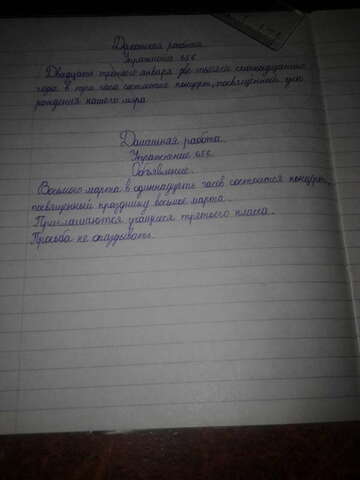 Домашняя работа
Упражнение 656
Двадцать третьего января две тысячи семнадцатого
года в три часа состоится концерт, посвященный дню
рождения нашего мэра
Домашняя работа.
Упражнение 656.
Объявление.
Восьмого марта в одиннадцать часов состоится концерт,
посвященный празднику восьмое марта.
Приглашаются учащиеся третьего класса.
Просьба не опаздывать.